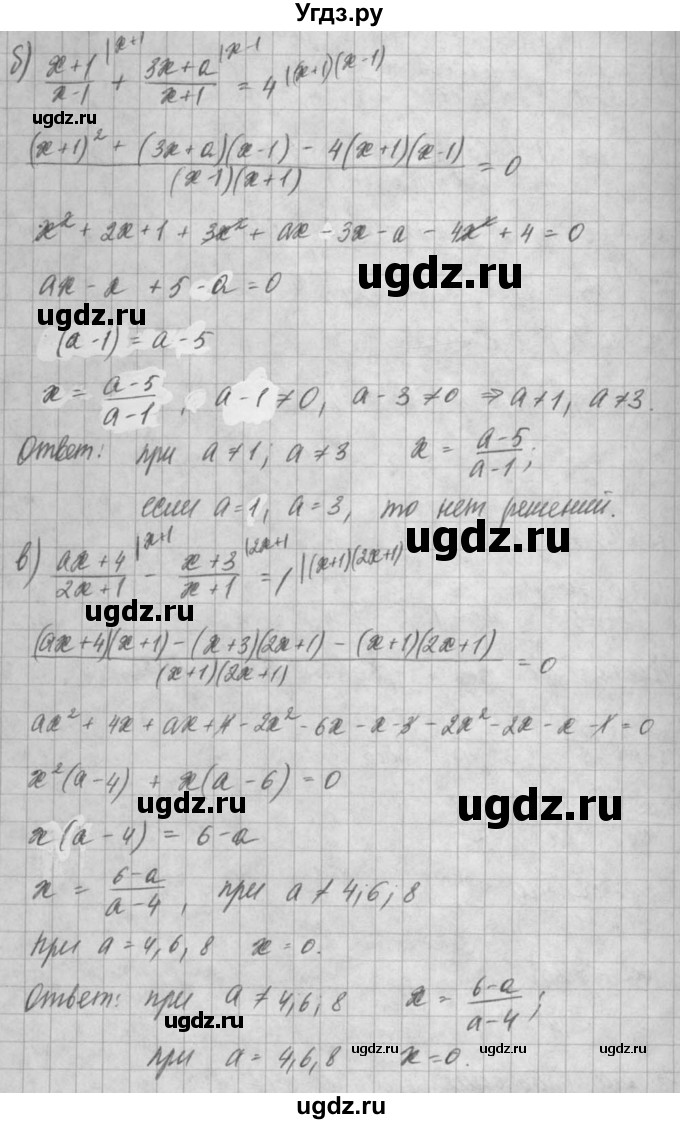 Угдз.ру
б) \frac{x+1}{x-1}^{|x+1} + \frac{3x+a}{x+1}^{|x-1} = 4^{|(x+1)(x-1)}
ugdz.ru
\frac{(x+1)^2 + (3x+a)(x-1) - 4(x+1)(x-1)}{(x-1)(x+1)} = 0
ugdz.ru
x^2 + 2x + 1 + 3x^2 + ax - 3x - a - 4x^2 + 4 = 0
ugdz.ru
ax - x + 5 - a = 0
ugdz.ru
(a-1) = a-5
x = \frac{a-5}{a-1}, a-1≠0, a-3≠0 ⇒ a≠1, a≠3.
Ответ: при a≠1; a≠3 x = \frac{a-5}{a-1};
ugdz.ru
если a=1, a=3, то нет решений.
ugdz.ru
в) \frac{ax+4}{2x+1}^{|x+1} - \frac{x+3}{x+1}^{|2x+1} = 1^{|(x+1)(2x+1)}
ugdz.ru
\frac{(ax+4)(x+1) - (x+3)(2x+1) - (x+1)(2x+1)}{(x+1)(2x+1)} = 0
ugdz.ru
ax^2 + 4x + ax + 4 - 2x^2 - 6x - x - 3 - 2x^2 - 2x - x - 1 = 0
x^2(a-4) + x(a-6) = 0
ugdz.ru ugdz.ru
x(a-4) = 6-a
x = \frac{6-a}{a-4}, при a≠4;6;8
при a=4,6,8 x=0.
ugdz.ru
Ответ: при a≠4;6;8 x = \frac{6-a}{a-4};
ugdz.ru
при a=4,6,8 x=0.
ugdz.ru ugdz.ru ugdz.ru
ugdz.ru